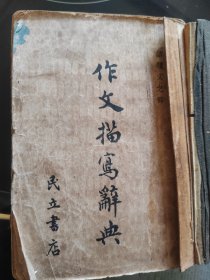 作文描寫辭典
民立書店